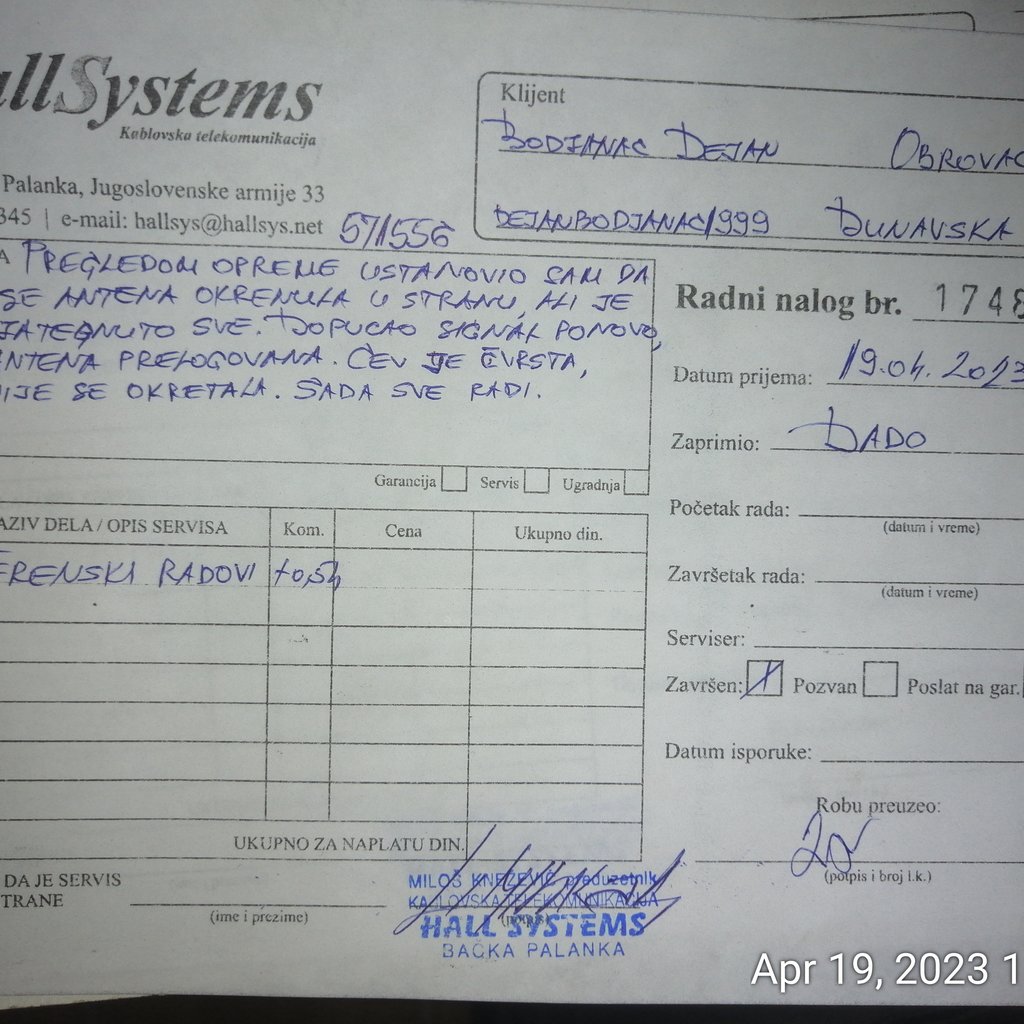 allSystems
Kablovska telekomunikacija
Palanka, Jugoslovenske armije 33
345 | e-mail: hallsys@hallsys.net
57/1556
Klijent
BODJANAC DEJAN OBROVAC
DEJANBODJANAC/1999 DUNAVSKA
A PREGLEDOM OPREME USTANOVIO SAM DA
SE ANTENA OKRENULA U STRANU, ALI JE
ZATEGNUTO SVE. DOPUCAO SIGNAL PONOVO,
ANTENA PRELOGOVANA. CEV JE ČVRSTA,
NIJE SE OKRETALA. SADA SVE RADI.
Garancija Servis Ugradnja
Radni nalog br. 1748
Datum prijema: 19.04.2023
Zaprimio: DADO
Početak rada:
(datum i vreme)
Završetak rada:
(datum i vreme)
Serviser:
Završen: Pozvan Poslat na gar.
Datum isporuke:
Robu preuzeo:
(potpis i broj l.k.)
AZIV DELA / OPIS SERVISA Kom. Cena Ukupno din.
ERENSKI RADOVI +0,5h
UKUPNO ZA NAPLATU DIN.
DA JE SERVIS
TRANE
(ime i prezime)
(potpis)
MILOŠ KNEŽEVIĆ preduzetnik
KABLOVSKA TELEKOMUNIKACIJA
HALL SYSTEMS
BAČKA PALANKA
Apr 19, 2023 1